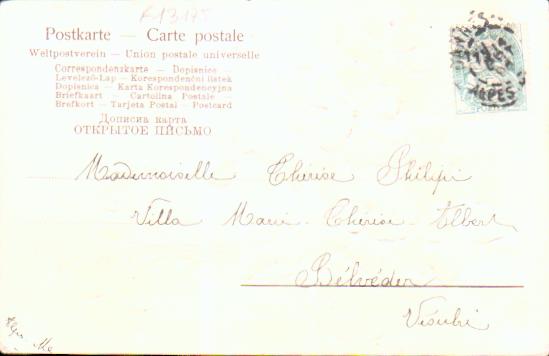 F13175
Postkarte — Carte postale
Weltpostverein — Union postale universelle
Correspondenzkarte — Dopisnice
Levelező-Lap — Korespondenční listek
Dopisnica — Karta Korespondencyjna
Briefkaart — Cartolina Postale
Brefkort — Tarjeta Postal — Postcard
Дописна карта
ОТКРЫТОЕ ПИСЬМО
ALPES
Mademoiselle Thérèse Philipi
Villa Marie-Thérèse Albert
Bélvéder
Vésubi